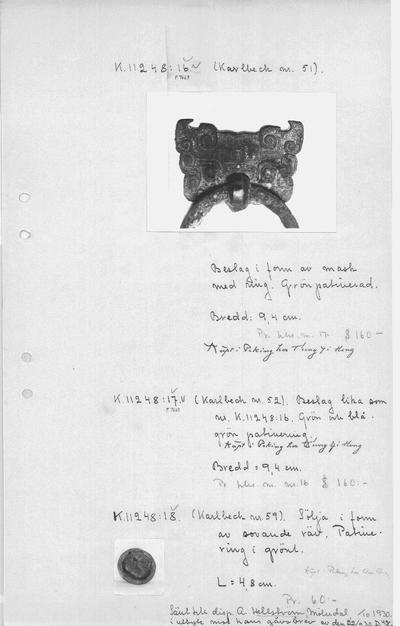 K.11248:16. (Karlbeck nr. 51).
Beslag i form av mask
med ring. Grön patinerad.
Bredd: 9,4 cm.
Pr. tills. m. 17. $160-
Köpt i Peking hos Tung Yi Hong
K.11248:17. (Karlbeck nr. 52). Beslag lika som
nr. K.11248:16. Grön och blå-
grön patinering.
Köpt i Peking hos Tung Yi Hong
Bredd = 9,4 cm.
Pr. tills. m. nr. 16 $160:-
K.11248:18. (Karlbeck nr. 59). Sölja i form
av sovande räv. Patine-
ring i grönt.
Köpt i Peking hos
L = 4,8 cm.
Pr. 60-
disp. A. Hellström, Mölndal
i utbyte mot hans gåvobrev av den